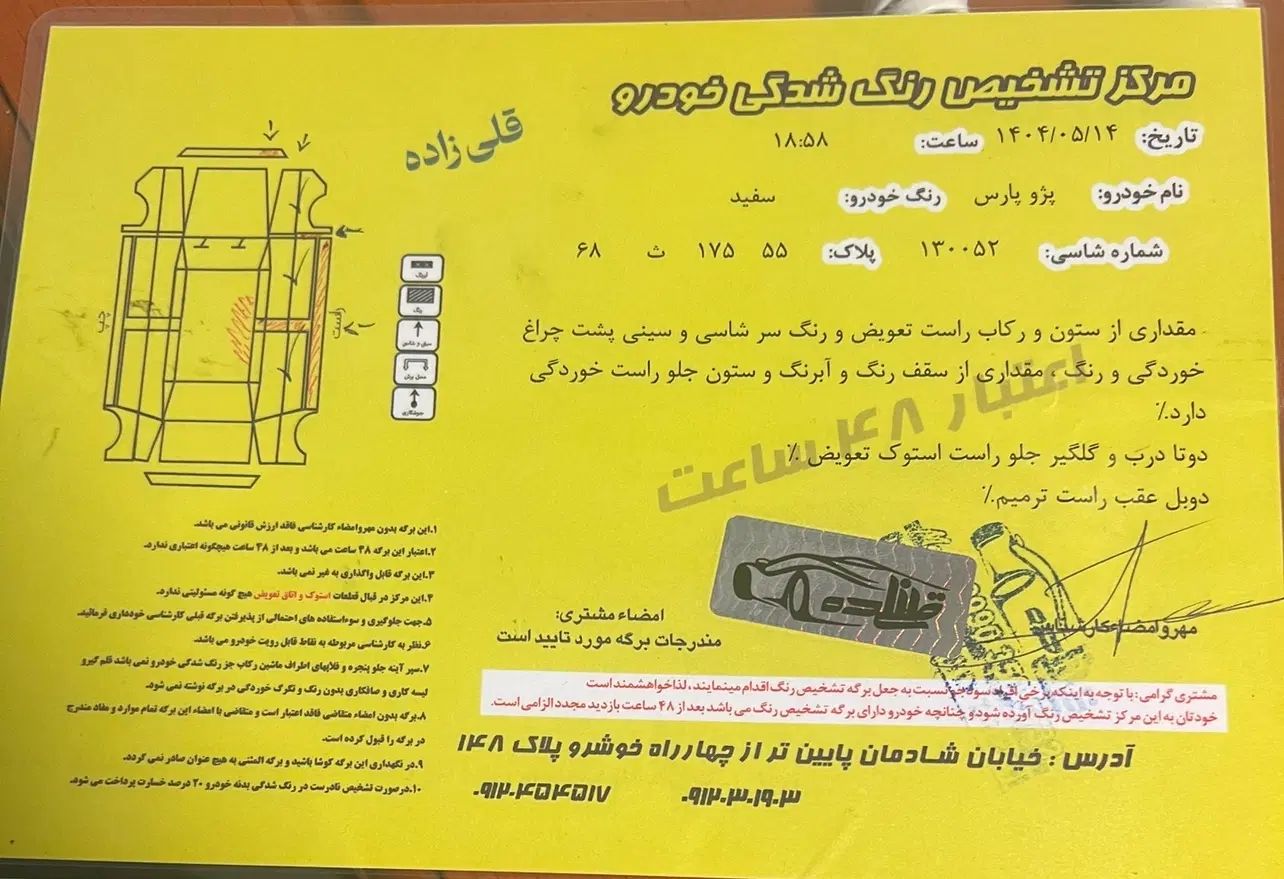 مرکز تشخیص رنگ شدگی خودرو
قلی زاده
تاریخ: ۱۴۰۴/۰۵/۱۴ ساعت: ۱۸:۵۸
نام خودرو: پژو پارس رنگ خودرو: سفید
شماره شاسی: ۱۳۰۰۵۲ پلاک: ۵۵ ۱۷۵ ث ۶۸
مقداری از ستون و رکاب راست تعویض و رنگ سر شاسی و سینی پشت چراغ
خوردگی و رنگ ، مقداری از سقف رنگ و آبرنگ و ستون جلو راست خوردگی
دارد.٪
دوتا درب و گلگیر جلو راست استوک تعویض.٪
دوبل عقب راست ترمیم.٪
اعتبار ۴۸ ساعت
چپ
راست
رنگ
محل برش
جوشکاری
مهر و امضاء کارشناس
امضاء مشتری:
مندرجات برگه مورد تایید است
قلیزاده
۱.این برگه بدون مهروامضاء کارشناسی فاقد ارزش قانونی می باشد.
۲.اعتبار این برگه ۴۸ ساعت می باشد و بعد از ۴۸ ساعت هیچگونه اعتباری ندارد.
۳.این برگه قابل واگذاری به غیر نمی باشد.
۴.این مرکز در قبال قطعات استوک و اتاق تعویض هیچ گونه مسئولیتی ندارد.
۵.جهت جلوگیری و سوءاستفاده های احتمالی از پذیرفتن برگه قبلی کارشناسی خودداری فرمائید.
۶.نظر به کارشناسی مربوطه به نقاط قابل رویت خودرو می باشد.
۷.سپر آینه جلو پنجره و قلابهای اطراف ماشین رکاب جز رنگ شدگی خودرو نمی باشد قلم گیرو
لیسه کاری و صافکاری بدون رنگ و تگرگ خوردگی در برگه نوشته نمی شود.
۸.برگه بدون امضاء متقاضی فاقد اعتبار است و متقاضی با امضاء این برگه تمام موارد و مفاد مندرج
در برگه را قبول کرده است.
۹.در نگهداری این برگه کوشا باشید و برگه المثنی به هیچ عنوان صادر نمی گردد.
۱۰.درصورت تشخیص نادرست در رنگ شدگی بدنه خودرو ۲۰ درصد خسارت پرداخت می شود.
مشتری گرامی: با توجه به اینکه برخی افراد سودجو نسبت به جعل برگه تشخیص رنگ اقدام مینمایند، لذا خواهشمند است
خودتان به این مرکز تشخیص رنگ آورده شود و چنانچه خودرو دارای برگه تشخیص رنگ می باشد بعد از ۴۸ ساعت بازدید مجدد الزامی است.
آدرس : خیابان شادمان پایین تر از چهارراه خوشرو پلاک ۱۴۸
۰۹۱۲۰۳۰۱۹۰۳ ۰۹۱۲۰۴۵۴۵۱۷